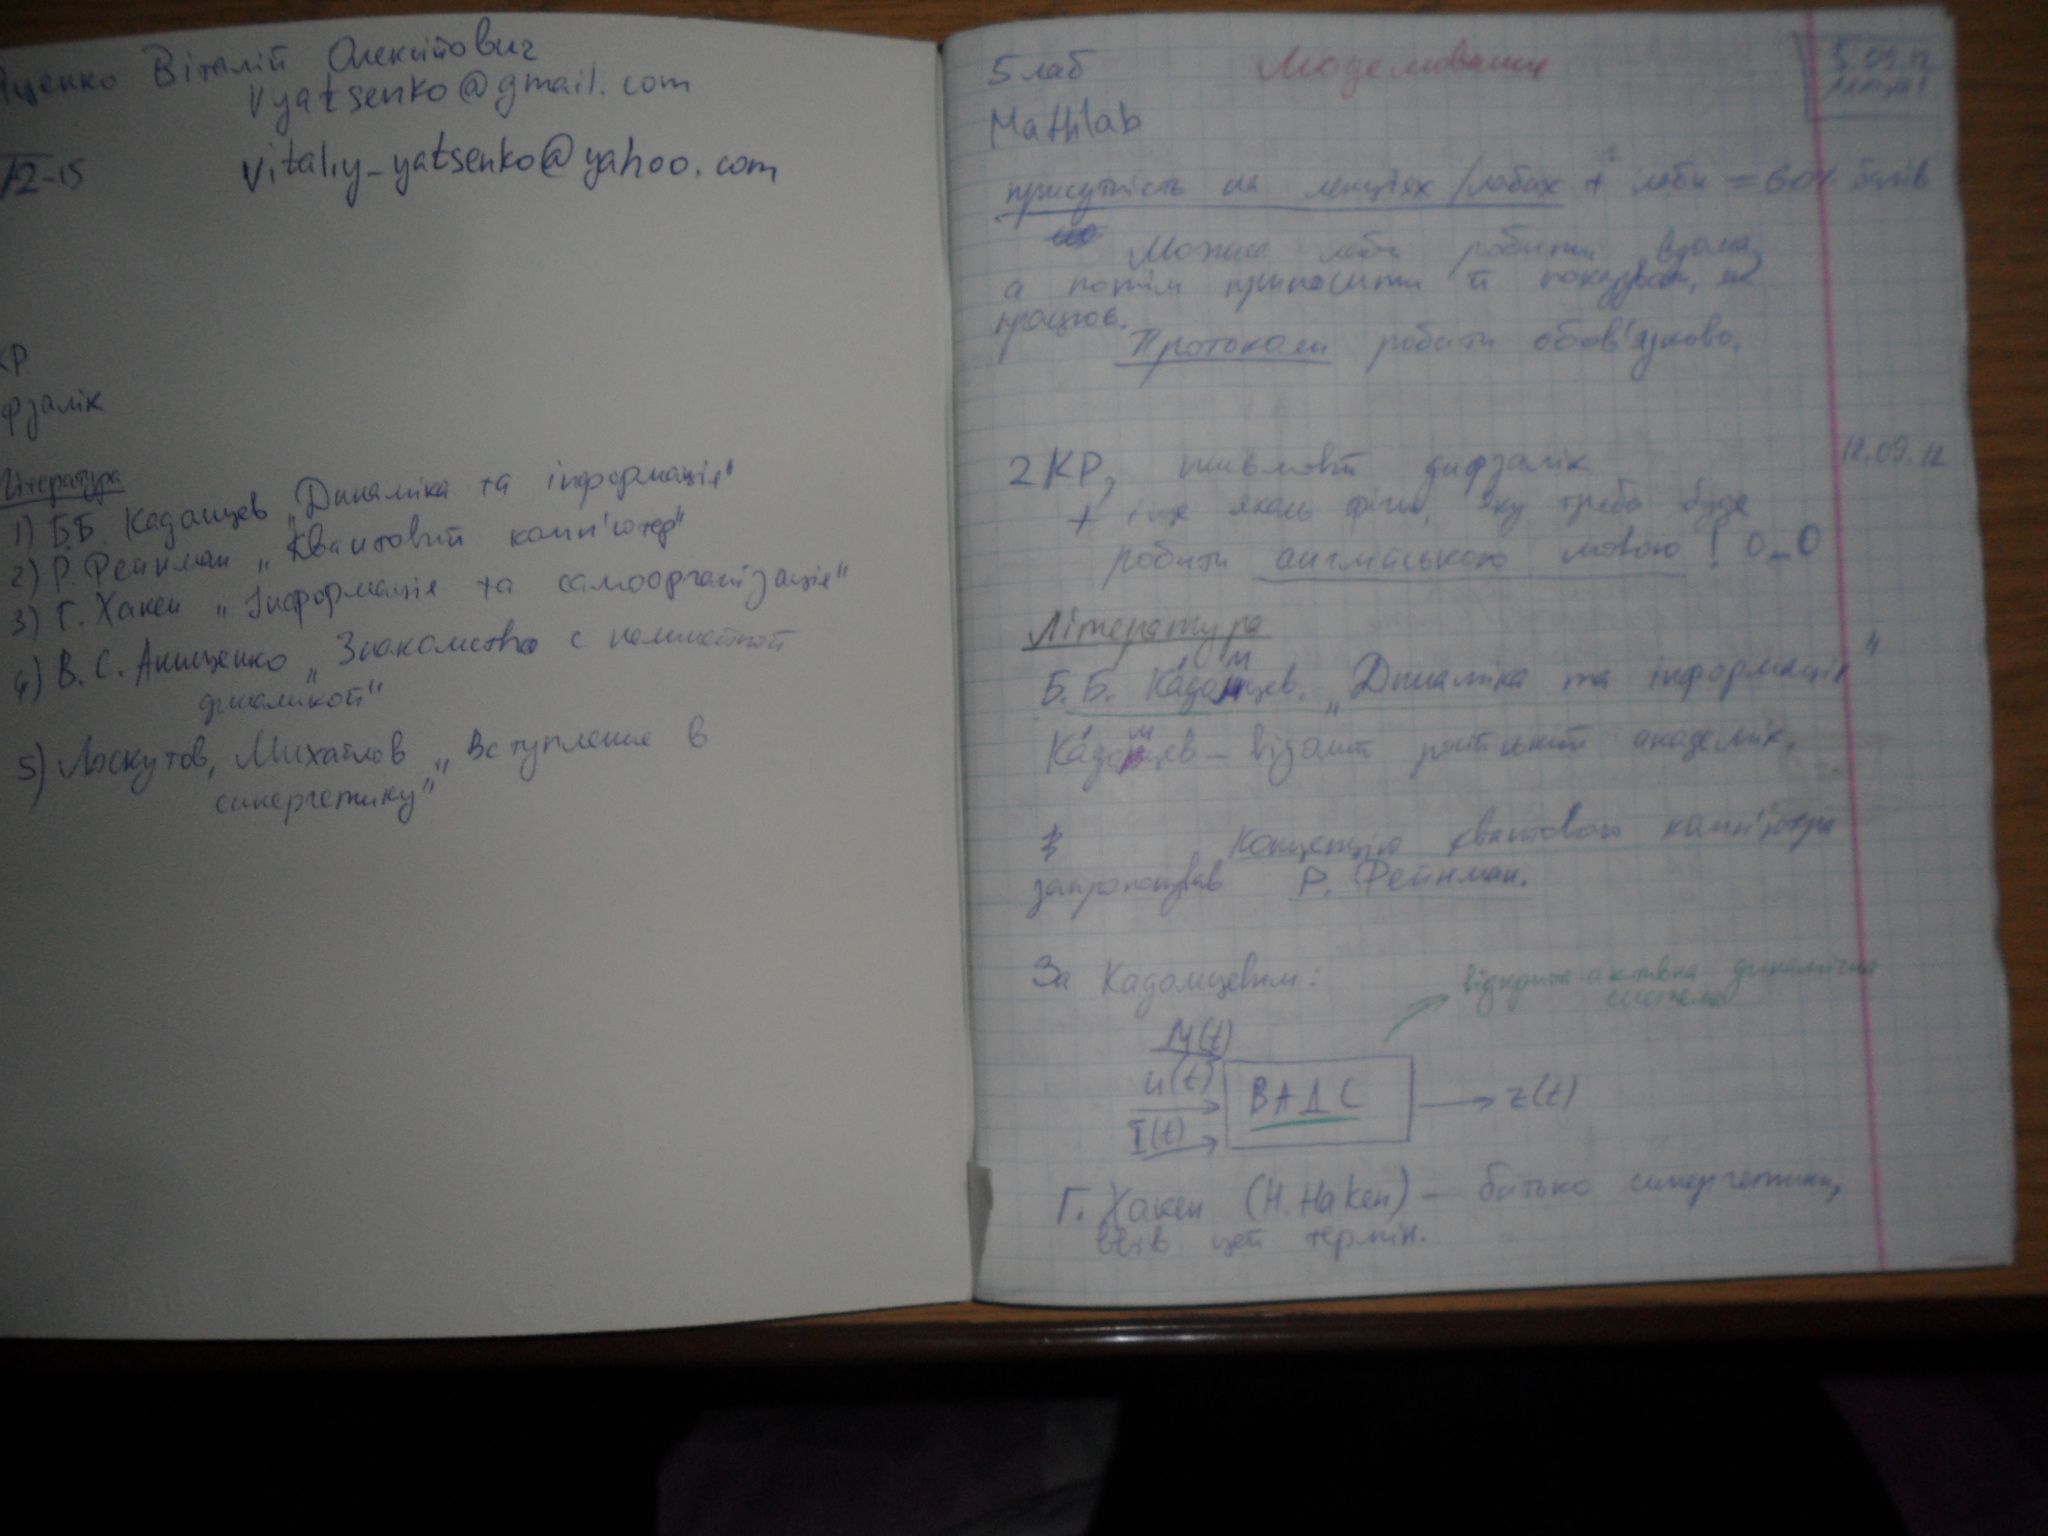 яценко Віталій Олексійович
vyatsenko@gmail.com
vitaliy_yatsenko@yahoo.com
12-15
КР
фзалік
Література
1) Б.Б. Кадомцев „Динаміка та інформація"
2) Р. Фейнман „Квантовий комп'ютер"
3) Г. Хакен „Інформація та самоорганізація"
4) В.С. Анищенко „Знакомство с нелинейной
динамикой"
5) Лоскутов, Михайлов „Вступление в
синергетику"
5 лаб Моделювання 5.09.12
Mathlab
присутність на лекціях/лабах + лаби = 60% балів
Можна лаби робити вдома,
а потім приносити й показувати, як
працює.
Протоколи робити обов'язково.
2 КР, письмовий дифзалік 12.09.12
+ іще якась фігня, яку треба буде
робити англійською мовою! O_O
Література
Б.Б. Кадомцев. „Динаміка та інформація"
Кадомцев – російський академік.
Концепцію квантового комп'ютера
запропонував Р. Фейнман.
За Кадомцевим:
відкрита активна динамічна
система
M(t)
u(t)
I(t)
ВАДС
z(t)
Г. Хакен (H. Haken) – батько синергетики,
ввів цей термін.